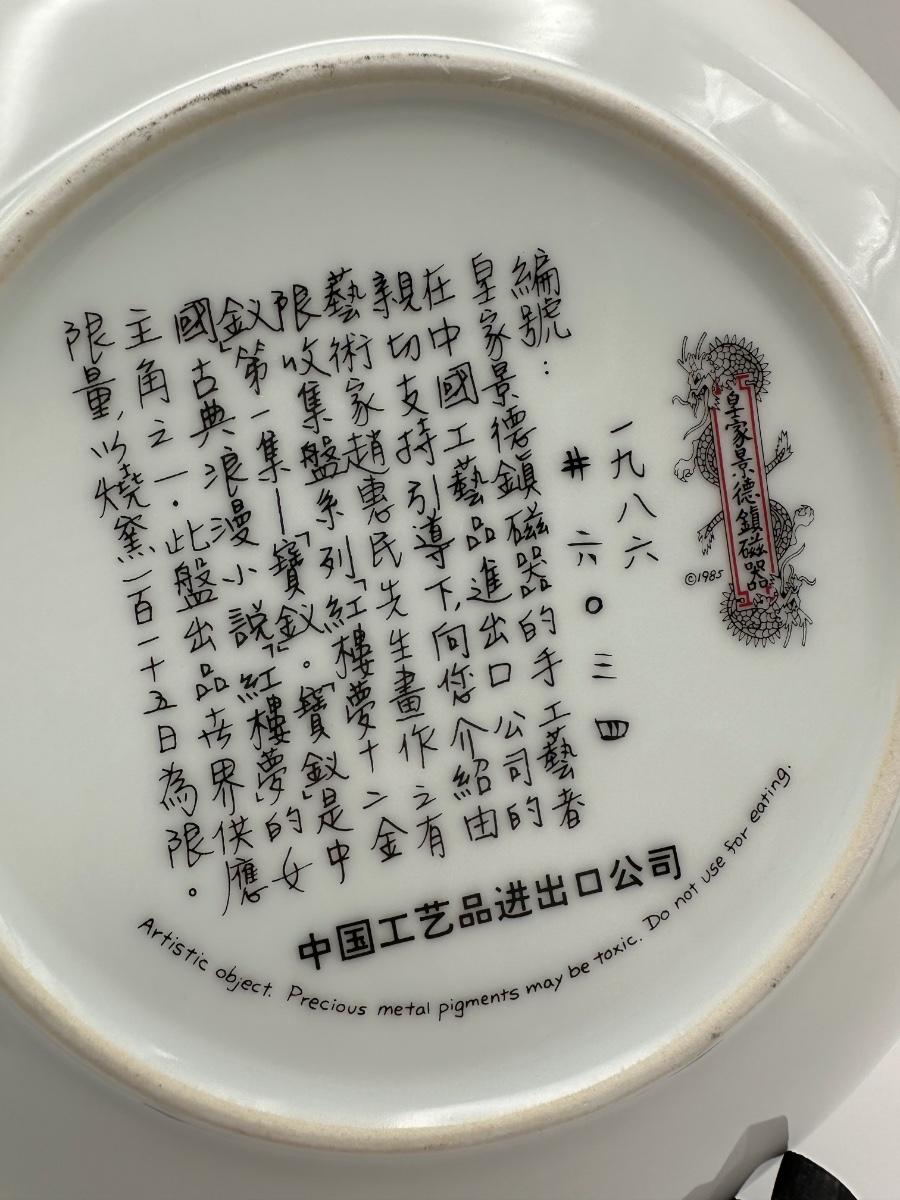 皇家景德鎮磁器
©1985
一九八六
# 六〇三四
編號：
皇家景德鎮磁器的手工藝者
在中國工藝品進出口公司的
親切支持引導下,向您介紹由
藝術家趙惠民先生畫作之有
限收集盤系列「紅樓夢十二金
釵」第一集—「寶釵」。「寶釵」是中
國古典浪漫小說「紅樓夢」的女
主角之一.此盤出品世界供應
限量,以燒窯一百一十五日為限。
中国工艺品进出口公司
Artistic object. Precious metal pigments may be toxic. Do not use for eating.